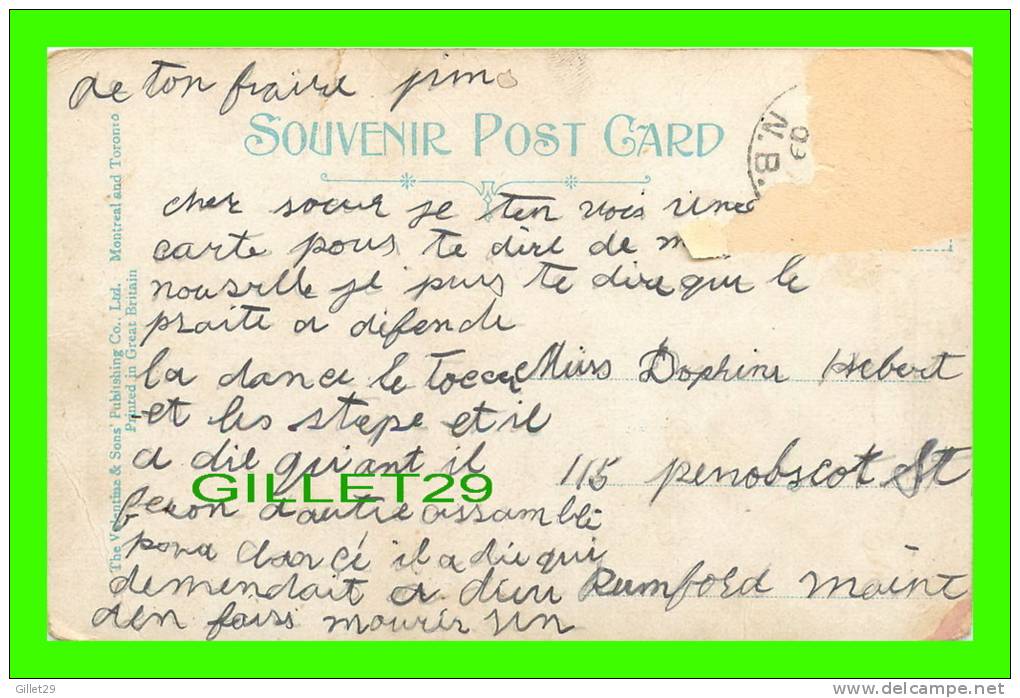 de ton fraire jim
SOUVENIR POST CARD
09
N.B.
cher soeur je ten vois une
carte pour te dire de m
nouvelle je puis te dire que le
praite a défende
la dance le
et les stepe et il
a die qui ant il
feron dautre assamblé
pour dancé il a die qui
demendait a dieu
den faiss mourir un
Miss Dophine Hebert
115 penobscot St
Rumford maine
The Valentine & Sons' Publishing Co., Ltd. Montreal and Toronto
Printed in Great Britain
GILLET29
Gillet29
http://www.delcampe.net